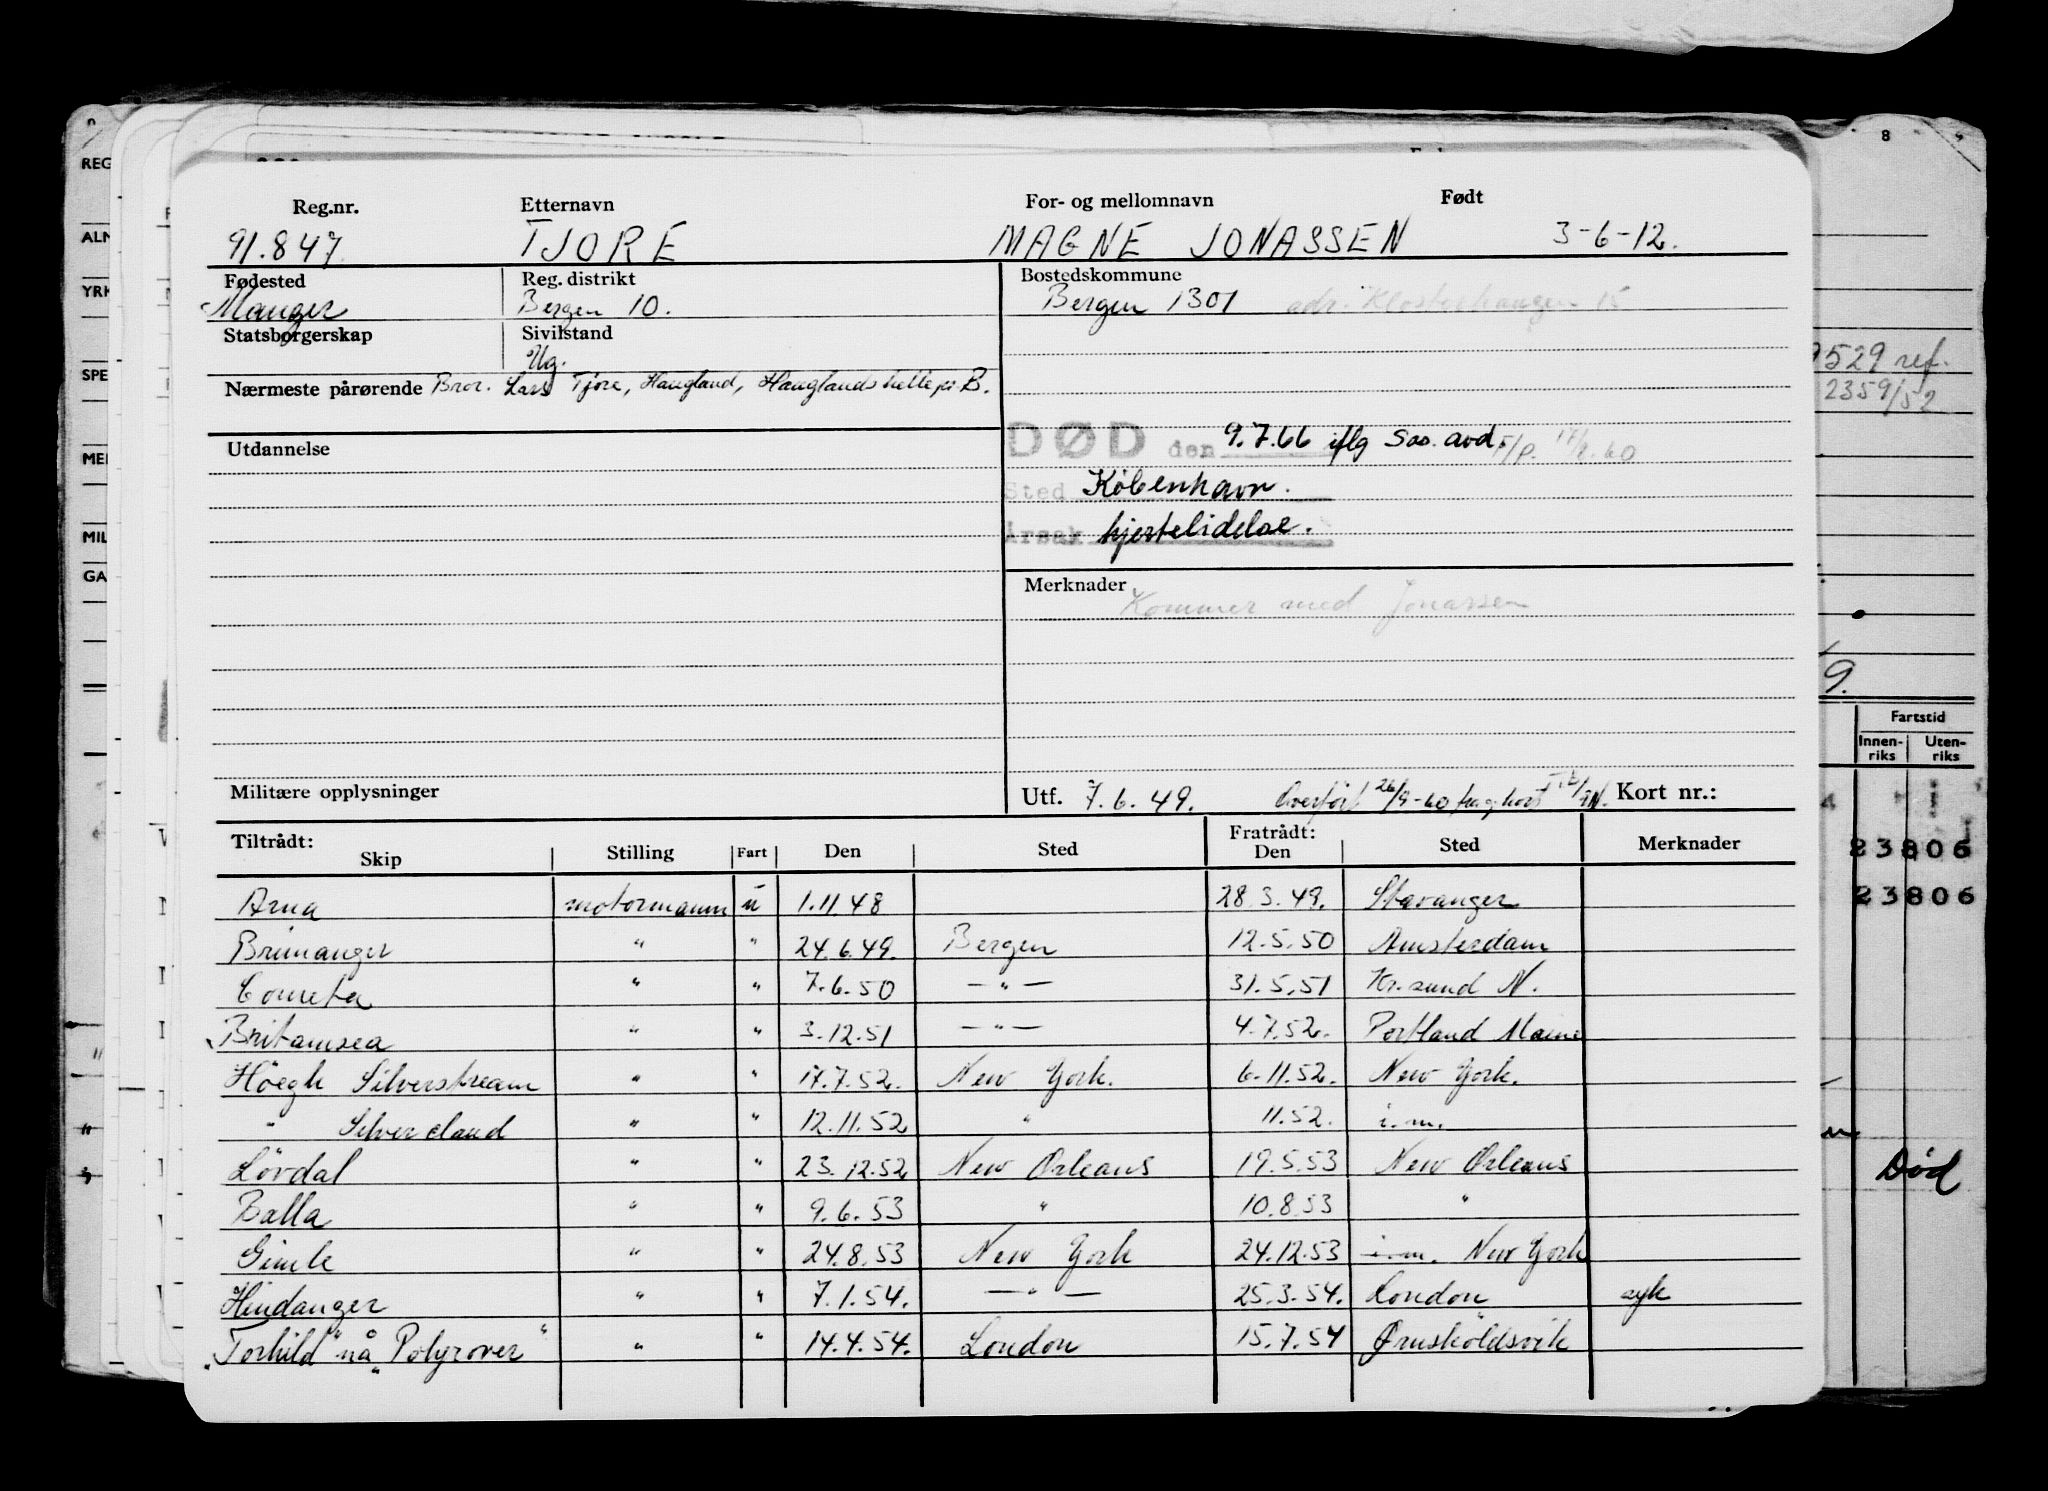 Reg.nr. Etternavn For- og mellomnavn Født
91.847 TJORE MAGNE JONASSEN 3-6-12.
Fødested Reg. distrikt Bostedskommune
Manger Bergen 10. Bergen 1301 adr. Klosterhaugen 15
Statsborgerskap Sivilstand
Ug.
Nærmeste pårørende Bror. Lars Tjore, Haugland, Hauglandshella pr B.
Utdannelse
DØD den 9.7.66 iflg Sos. avd.
Sted København.
Årsak hjertelidelse.
Merknader
Kommer med Jonassen
Militære opplysninger Utf. 7.6.49. Overført 26/9-60 Kort nr.:
Tiltrådt: Fratrådt:
Skip Stilling Fart Den Sted Den Sted Merknader
Arna motormann u 1.11.48 28.3.49. Stavanger
Brimanger " " 24.6.49. Bergen 12.5.50 Amsterdam
Cometa " " 7.6.50 —"— 31.5.51 Kr.sund N.
Britamsea " " 3.12.51 —"— 4.7.52. Portland Maine
Höegh Silverstream " " 17.7.52. New York. 6.11.52. New York.
" Silvercloud " " 12.11.52 " 11.52. i.m.
Lövdal " " 23.12.52 New Orleans 19.5.53 New Orleans
Balla " " 9.6.53 " 10.8.53 "
Gimle " " 24.8.53 New York 24.12.53 i.m. New York
Hindanger " " 7.1.54. —"— 25.3.54. London syk
"Torhild" nå "Polyrover" " " 14.4.54. London 15.7.54 Ørnsköldsvik
REG
ALM
YRK
SPE
MEI
MIL
GA
8
9529 ref.
2359/52
9.
Fartstid
Innen-riks Uten-riks
23806
23806
Død